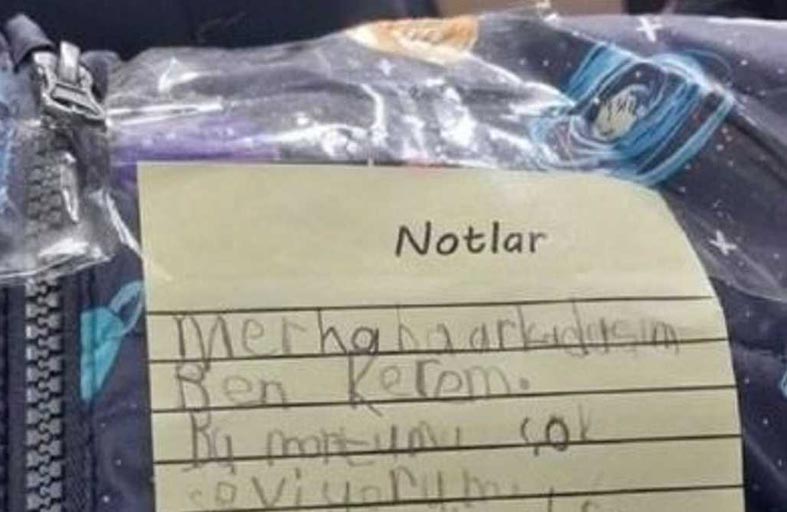 Notlar
Merhaba arkadaşım
Ben Kerem.
Bu montumu çok
seviyorum